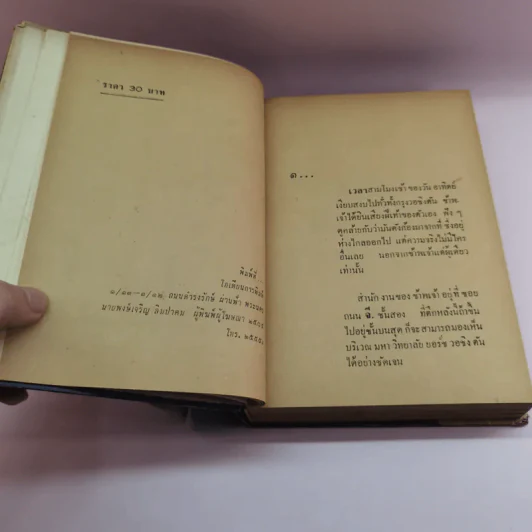 ราคา ๖๐ บาท
พิมพ์ที่
โอเดียนการพิมพ์
ถนนดำรงรักษ์ ผ่านฟ้า พระนคร
นายพงษ์เจริญ ลิมปาคม ผู้พิมพ์ผู้โฆษณา ๒๕๐๔
๑...
เวลาสามโมงเช้า ของวัน อาทิตย์
เงียบสงบไปทั่วทั้งกรุงวอชิงตัน ข้าพะ
เจ้าได้ยินเสียงฝีเท้าของตัวเอง ฟัง ๆ
ดูคล้ายกับว่ามันดังก้องมาจากที่ ซึ่งอยู่
ห่างไกลออกไป แต่ความจริงไม่มีใคร
อื่นเลย นอกจากข้าพเจ้าแต่ผู้เดียว
เท่านั้น
สำนัก งานของ ข้าพเจ้า อยู่ที่ ซอย
ถนน จี. ชั้นสอง ที่ตึกหลังนี้ถ้าขึ้น
ไปอยู่ชั้นบนสุด ก็จะ สามารถมองเห็น
บริเวณ มหา วิทยาลัย ยอร์ช วอชิงตัน
ได้อย่างชัดเจน